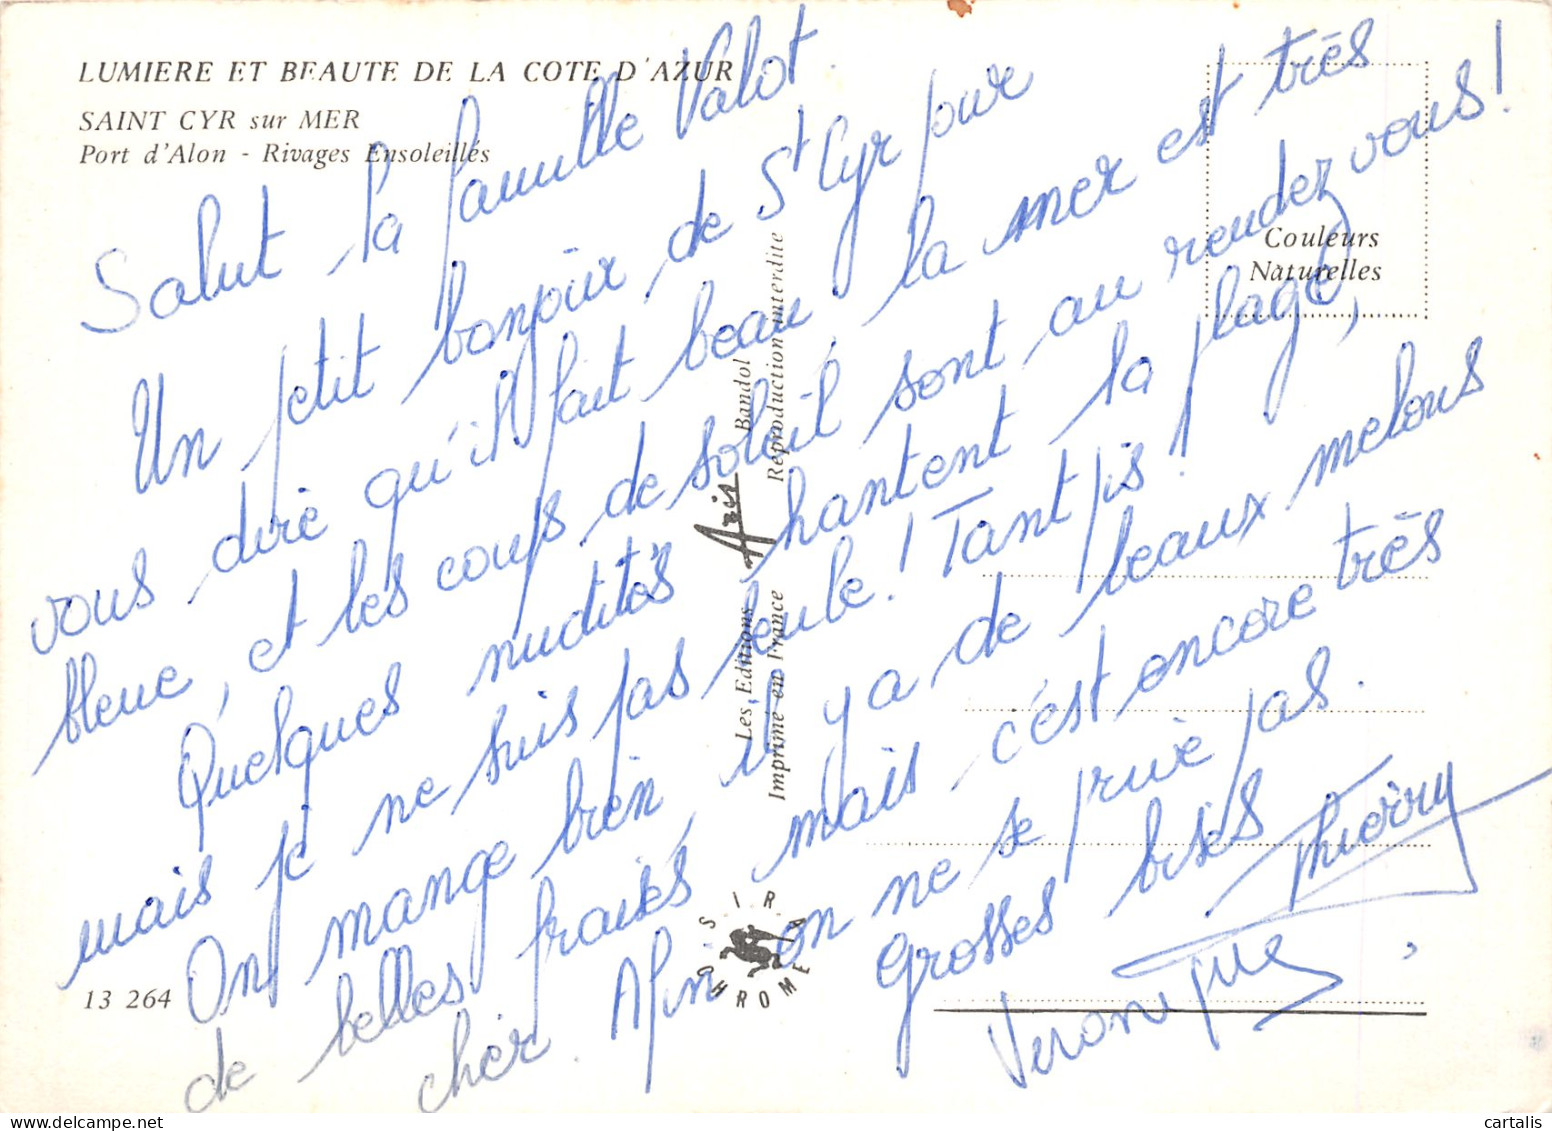 LUMIERE ET BEAUTE DE LA COTE D'AZUR
SAINT CYR sur MER
Port d'Alon - Rivages Ensoleillés
Couleurs
Naturelles
Salut la famille Valot
Un petit bonjour de St Cyr pour
vous dire qu'il fait beau, la mer est très
bleue, et les coups de soleil sont au rendez vous!
Quelques nudités hantent la plage,
mais je ne suis pas seule! Tant pis!
On mange bien, il y a de beaux melons
de belles fraises, mais c'est encore très
cher. Afin on ne se prive pas.
Grosses bises
Thierry
Véronique
Les Editions Aris Bandol
Imprimé en France Reproduction interdite
SIRA CHROME
13 264
cartalis
www.delcampe.net